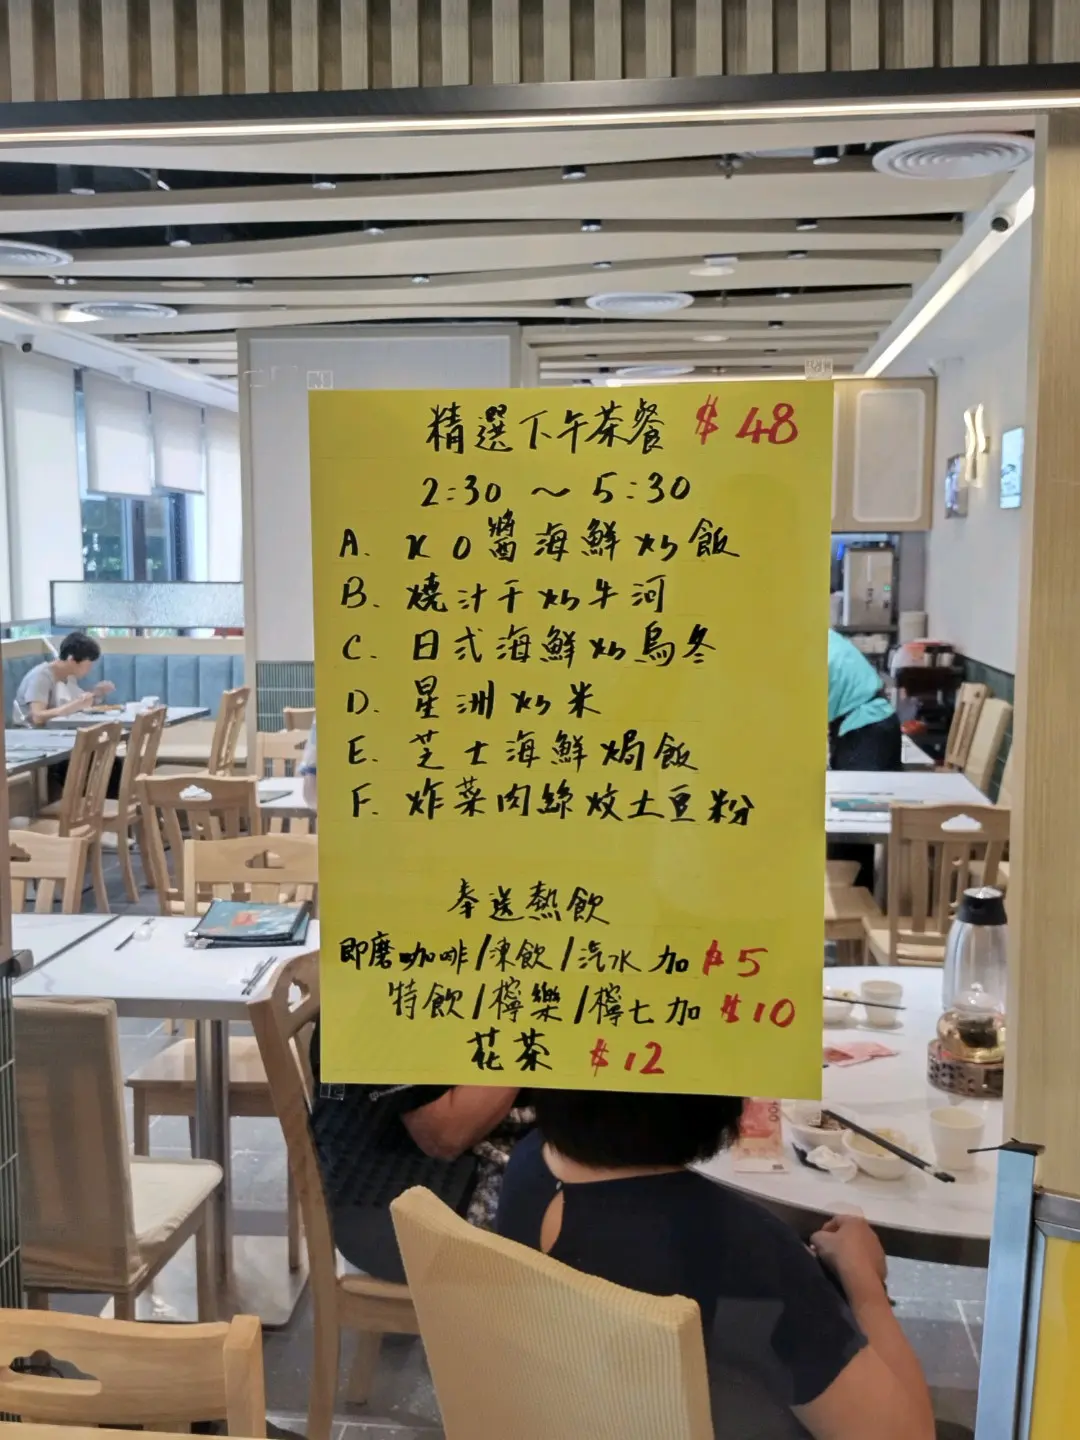 精選下午茶餐 $48
2:30 ~ 5:30
A. XO醬海鮮炒飯
B. 燒汁干炒牛河
C. 日式海鮮炒烏冬
D. 星洲炒米
E. 芝士海鮮焗飯
F. 炸菜肉絲炆土豆粉
奉送熱飲
即磨咖啡/凍飲/汽水 加 $5
特飲/檸樂/檸七加 $10
花茶 $12
100